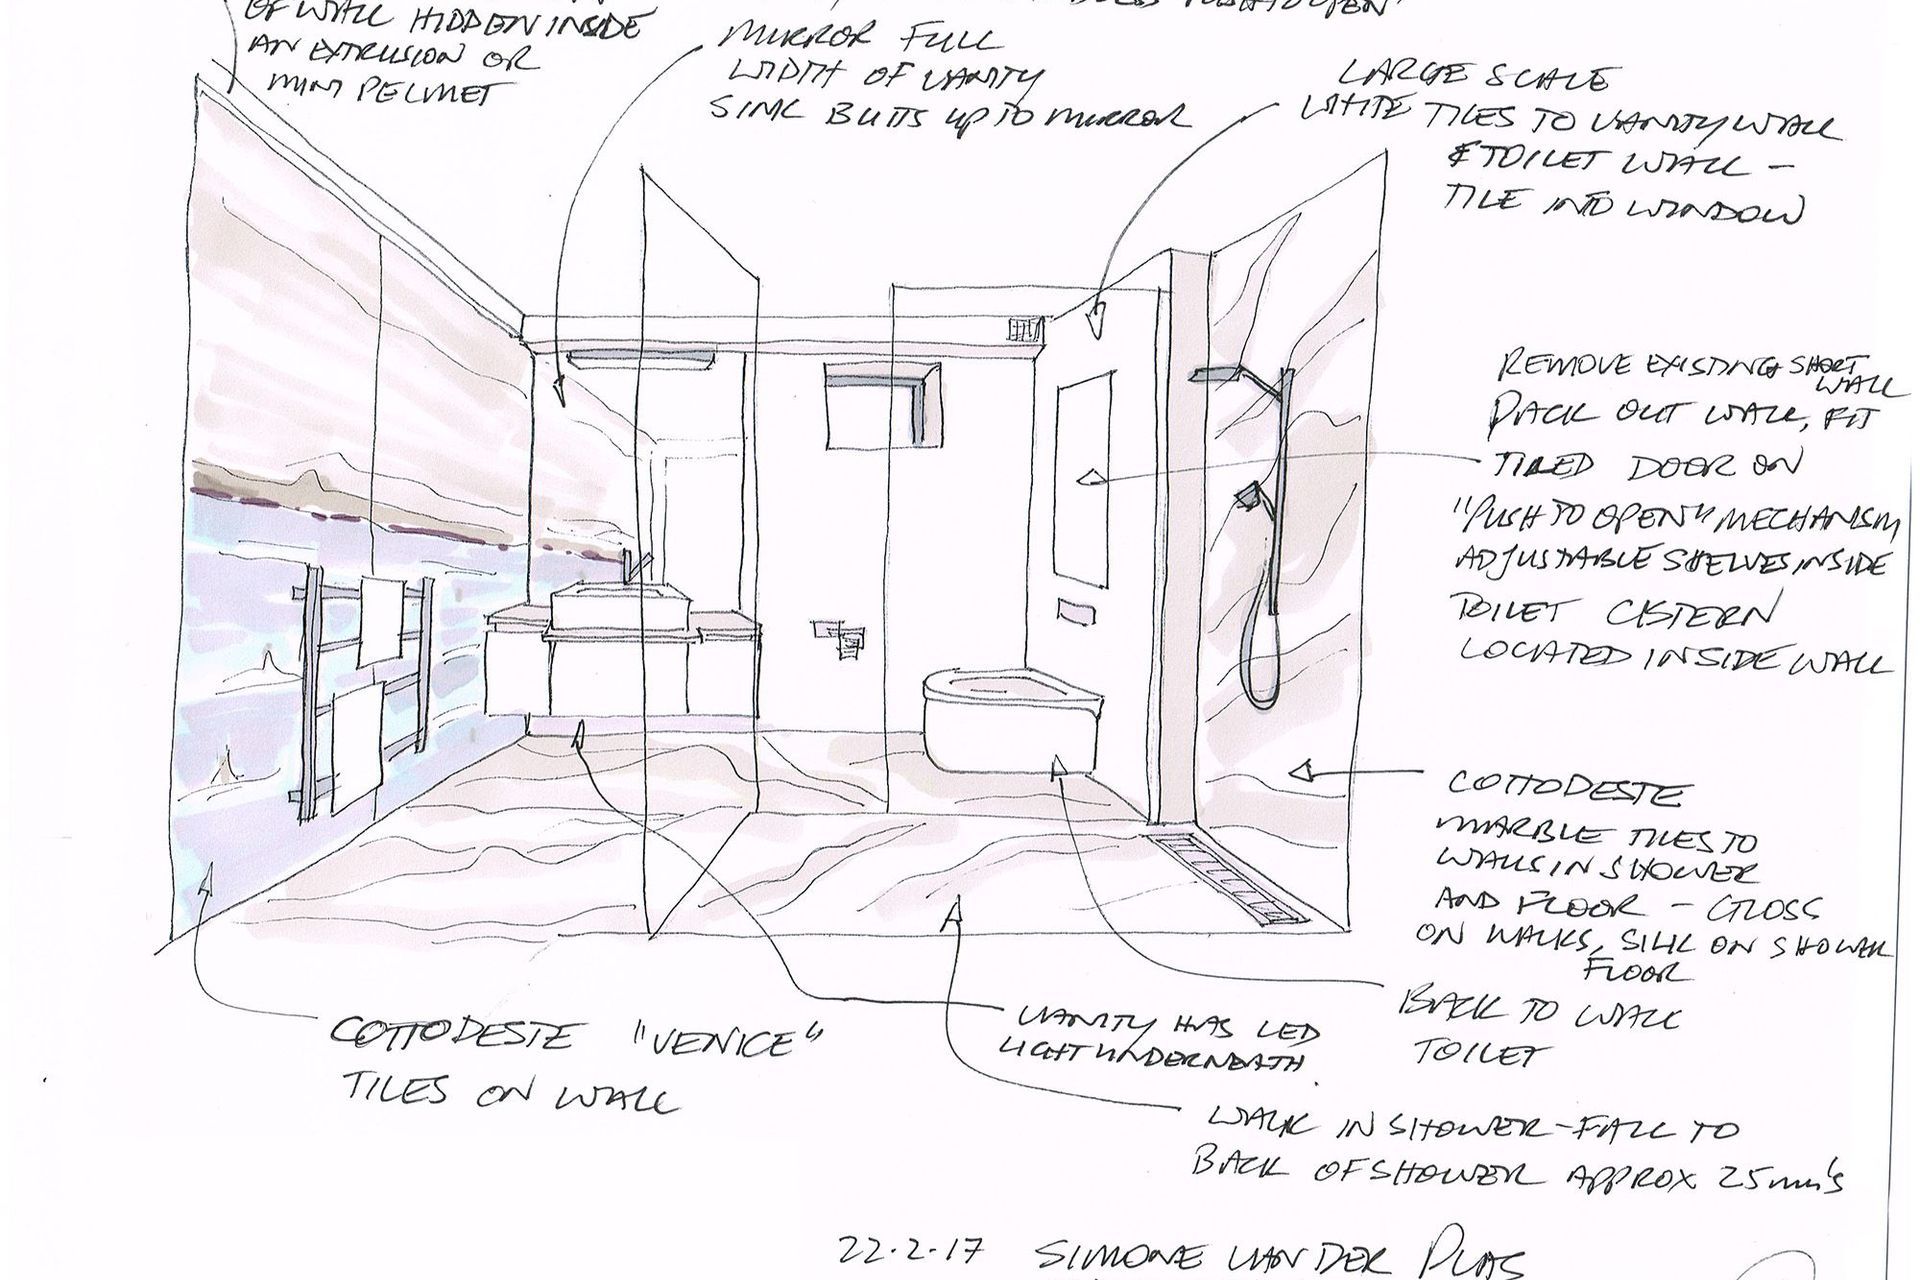 OF WALL HIDDEN INSIDE
AN EXTRUSION OR
MINI PELMET
PUSH TO OPEN
MIRROR FULL
WIDTH OF VANITY
SINK BUTTS UP TO MIRROR
LARGE SCALE
WHITE TILES TO VANITY WALL
& TOILET WALL -
TILE INTO WINDOW
REMOVE EXISTING SHORT
WALL
PACK OUT WALL, FIT
TILED DOOR ON
"PUSH TO OPEN" MECHANISM
ADJUSTABLE SHELVES INSIDE
TOILET CISTERN
LOCATED INSIDE WALL
COTTODESTE
MARBLE TILES TO
WALLS IN SHOWER
AND FLOOR - GLOSS
ON WALLS, SILK ON SHOWER
FLOOR
BACK TO WALL
TOILET
VANITY HAS LED
LIGHT UNDERNEATH
COTTODESTE "VENICE"
TILES ON WALL
WALK IN SHOWER - FALL TO
BACK OF SHOWER APPROX 25mm's
22.2.17 SIMONE VAN DER PLAS